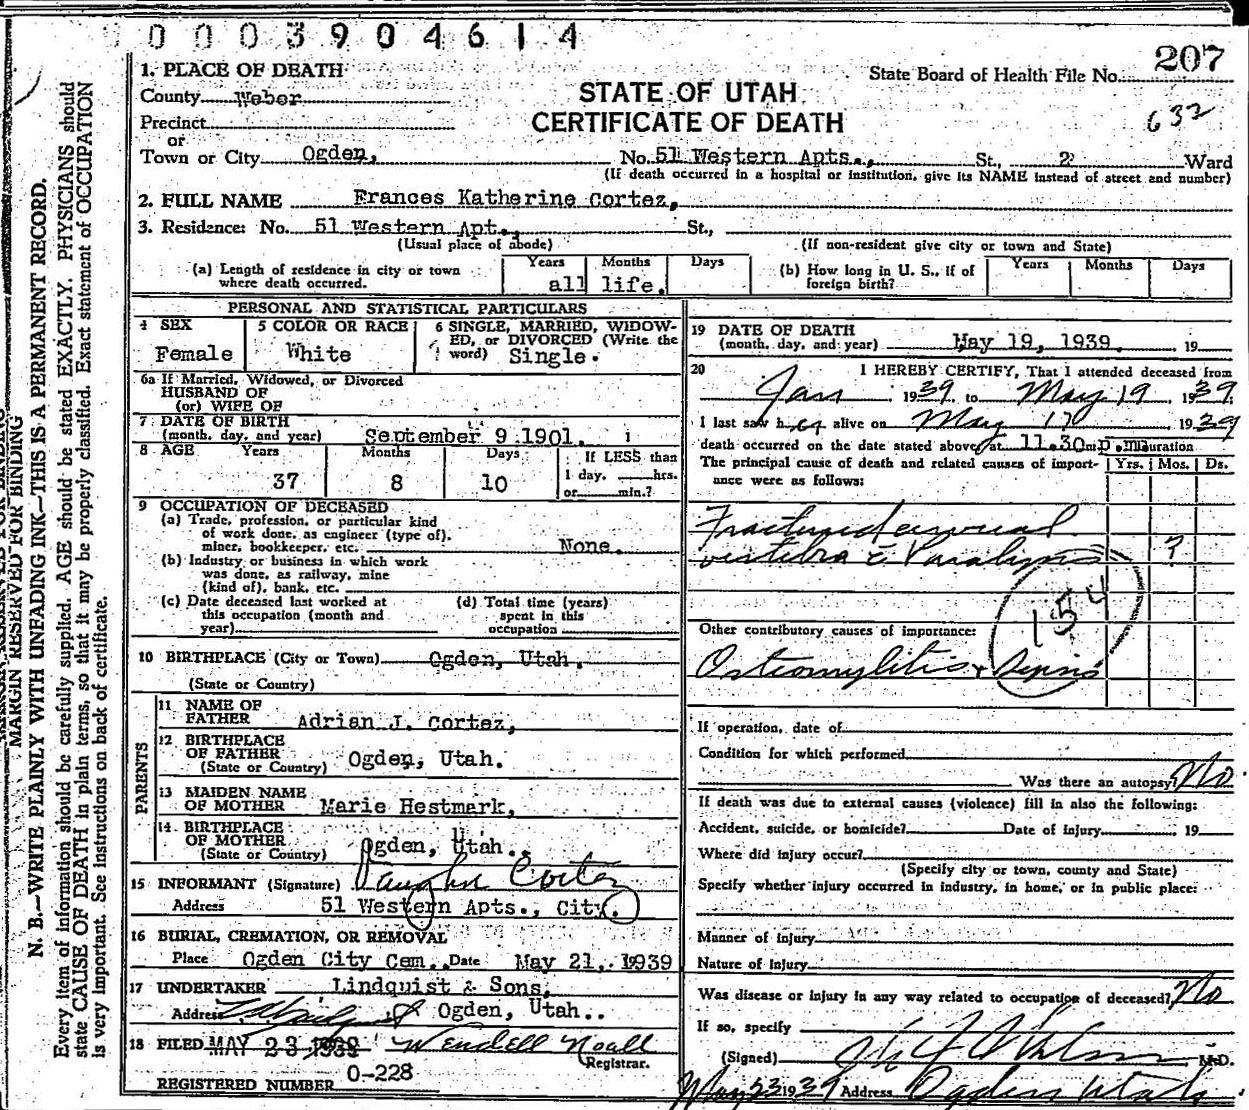 0003904614
207
1. PLACE OF DEATH
State Board of Health File No.
County Weber
STATE OF UTAH
632
Precinct
CERTIFICATE OF DEATH
or
Town or City Ogden, No. 51 Western Apts., St., 2 Ward
(If death occurred in a hospital or institution, give its NAME instead of street and number)
2. FULL NAME Frances Katherine Cortez,
3. Residence: No. 51 Western Apt., St.,
(Usual place of abode) (If non-resident give city or town and State)
(a) Length of residence in city or town where death occurred. Years Months Days
all life.
(b) How long in U. S., if of foreign birth? Years Months Days
PERSONAL AND STATISTICAL PARTICULARS
4 SEX
Female
5 COLOR OR RACE
White
6 SINGLE, MARRIED, WIDOW-
ED, or DIVORCED (Write the
word) Single.
6a If Married, Widowed, or Divorced
HUSBAND OF
(or) WIFE OF
7 DATE OF BIRTH
(month, day, and year) September 9 1901.
8 AGE Years Months Days If LESS than
1 day, hrs.
or min.?
37 8 10
9 OCCUPATION OF DECEASED
(a) Trade, profession, or particular kind
of work done, as engineer (type of),
miner, bookkeeper, etc. None.
(b) Industry or business in which work
was done, as railway, mine
(kind of), bank, etc.
(c) Date deceased last worked at
this occupation (month and
year)
(d) Total time (years)
spent in this
occupation
10 BIRTHPLACE (City or Town) Ogden, Utah.
(State or Country)
PARENTS
11 NAME OF
FATHER Adrian J. Cortez,
12 BIRTHPLACE
OF FATHER
(State or Country) Ogden, Utah.
13 MAIDEN NAME
OF MOTHER Marie Hestmark,
14 BIRTHPLACE
OF MOTHER
(State or Country) Ogden, Utah..
15 INFORMANT (Signature) Vaughn Cortez
Address 51 Western Apts., City.
16 BURIAL, CREMATION, OR REMOVAL
Place Ogden City Cem. Date May 21, 1939
17 UNDERTAKER Lindquist & Sons,
Address Ogden, Utah..
18 FILED MAY 23 1939 Wendell Noall
Registrar.
REGISTERED NUMBER 0-228
19 DATE OF DEATH
(month, day, and year) May 19, 1939. 19
20 I HEREBY CERTIFY, That I attended deceased from
Jan 1939 to May 19 1939
I last saw her alive on May 17 1939
death occurred on the date stated above, at 11.30 m p.m. Duration
The principal cause of death and related causes of import-
ance were as follows: Yrs. Mos. Ds.
Fractured cervical
vertebra c Paralysis ?
154
Other contributory causes of importance:
Osteomylitis + Sepsis
If operation, date of
Condition for which performed
Was there an autopsy? No
If death was due to external causes (violence) fill in also the following:
Accident, suicide, or homicide? Date of Injury 19
Where did injury occur?
(Specify city or town, county and State)
Specify whether injury occurred in industry, in home, or in public place:
Manner of injury
Nature of Injury
Was disease or injury in any way related to occupation of deceased? No
If so, specify
(Signed) M.D.
May 23 1939 Address Ogden Utah
MARGIN RESERVED FOR BINDING
N. B.—WRITE PLAINLY WITH UNFADING INK—THIS IS A PERMANENT RECORD.
Every item of information should be carefully supplied. AGE should be stated EXACTLY. PHYSICIANS should
state CAUSE OF DEATH in plain terms, so that it may be properly classified. Exact statement of OCCUPATION
is very important. See instructions on back of certificate.